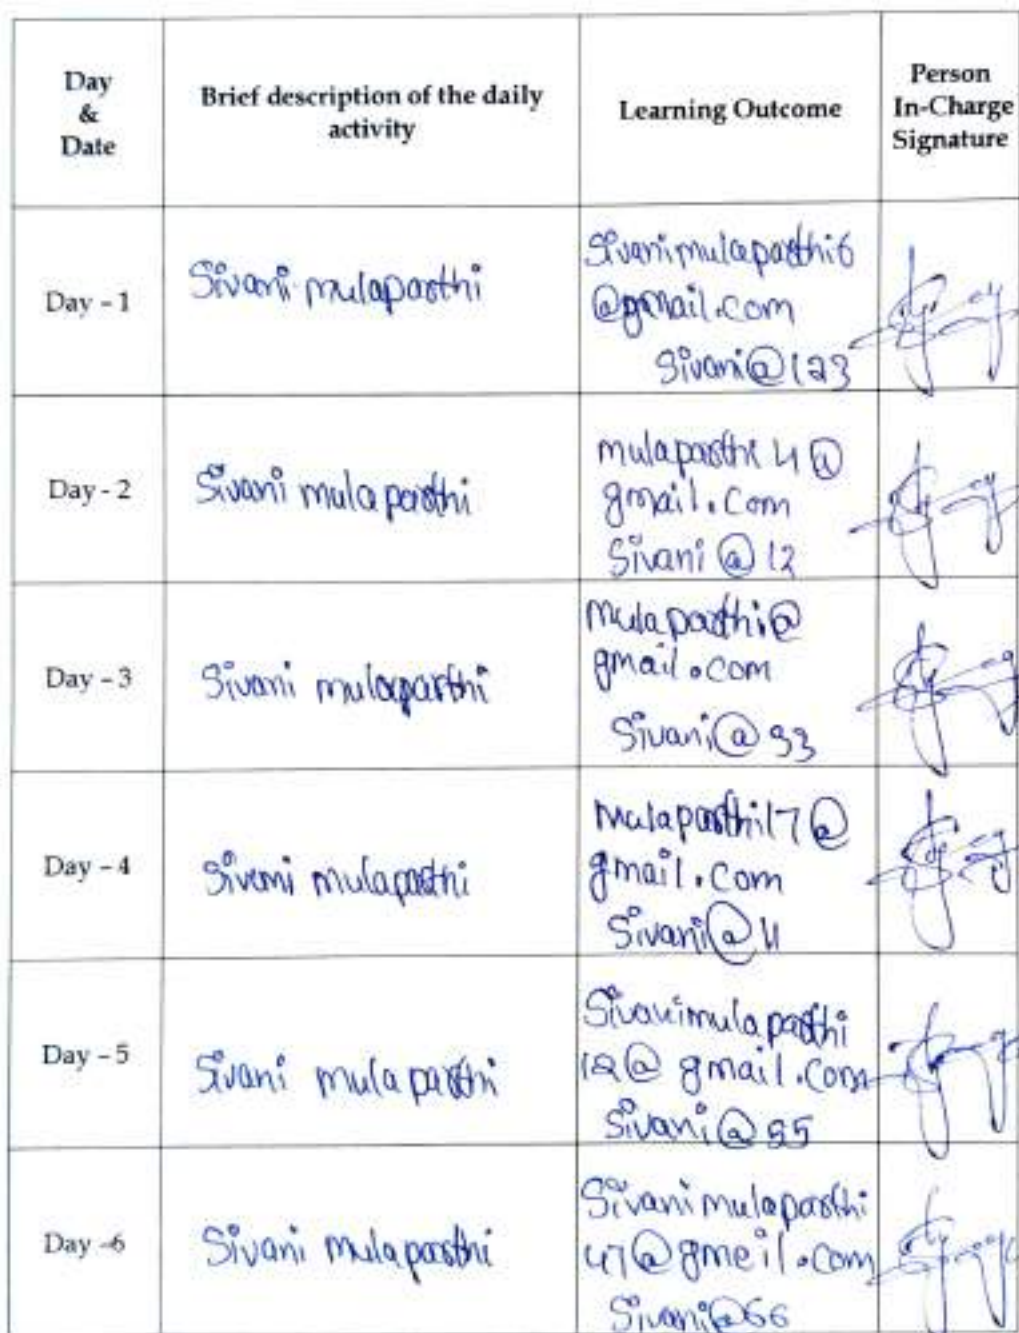 Day
&
Date
Brief description of the daily
activity
Learning Outcome
Person
In-Charge
Signature
Day - 1
Sivani mulaparthi
Sivanimulaparthi6
@gmail.com
Sivani@123
Day - 2
Sivani mulaparthi
mulaparthi 4@
gmail.com
Sivani@12
Day - 3
Sivani mulaparthi
mulaparthi@
gmail.com
Sivani@33
Day - 4
Sivani mulaparthi
mulaparthi17@
gmail.com
Sivani@11
Day - 5
Sivani mulaparthi
Sivanimulaparthi
12@gmail.com
Sivani@55
Day -6
Sivani mulaparthi
Sivanimulaparthi
47@gmeil.com
Sivani@66